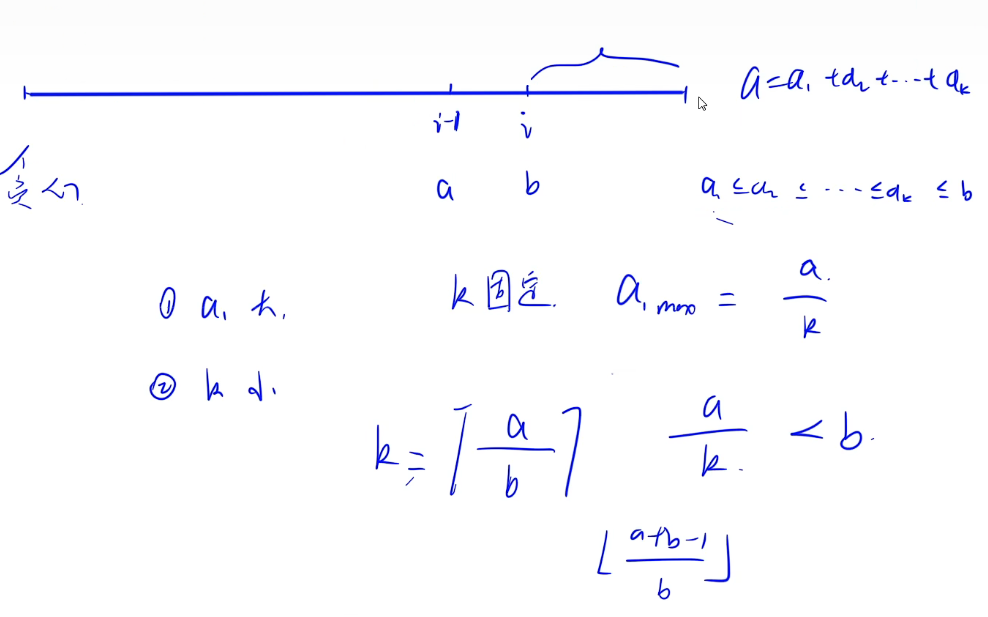 a = a₁ + a₂ + ... + aₖ
i-1 i
a b
a₁ ≤ a₂ ≤ ... ≤ aₖ ≤ b
① a₁ 大.
k 固定. a₁ max = a/k
② k 小.
k = ⌈a/b⌉ a/k < b.
⌊(a+b-1)/b⌋